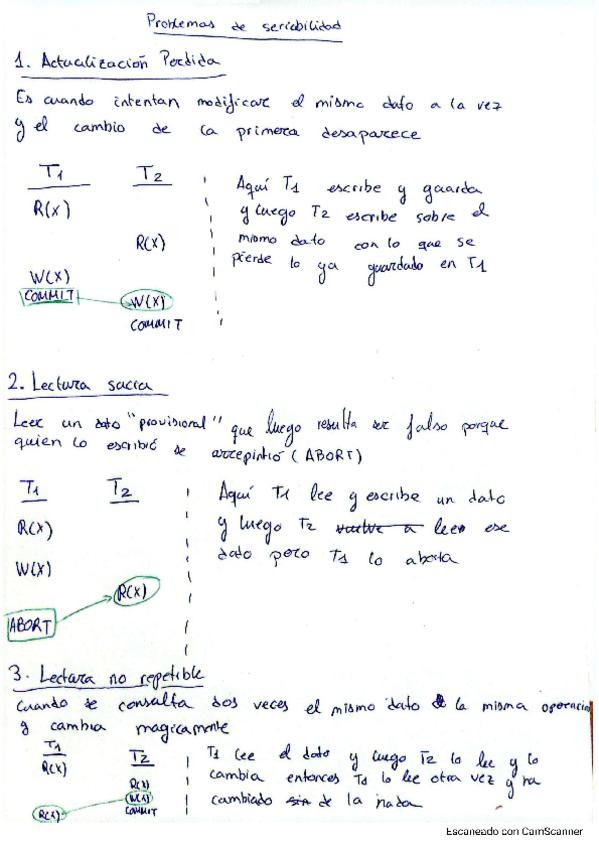 Problemas de seriabilidad
1. Actualización Perdida
Es cuando intentan modificar el mismo dato a la vez
y el cambio de la primera desaparece
T1 T2
R(X)
R(X)
W(X)
COMMIT W(X)
COMMIT
Aquí T1 escribe y guarda
y luego T2 escribe sobre el
mismo dato con lo que se
pierde lo ya guardado en T1
2. Lectura sucia
Leer un dato "provisional" que luego resulta ser falso porque
quien lo escribió se arrepintió (ABORT)
T1 T2
R(X)
W(X)
R(X)
ABORT
Aquí T1 lee y escribe un dato
y luego T2 vuelve a leer ese
dato pero T1 lo aborta
3. Lectura no repetible
Cuando se consulta dos veces el mismo dato la misma operación
y cambia magicamente
T1 T2
R(X)
R(X)
W(X)
COMMIT
R(X)
T1 lee el dato y luego T2 lo lee y lo
cambia entonces T1 lo lee otra vez y ha
cambiado de la nada
Escaneado con CamScanner